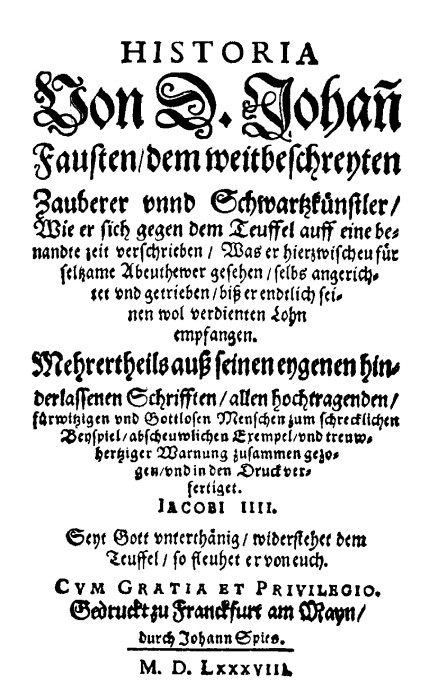 HISTORIA
Von D. Johañ
Fausten/dem weitbeschreyten
Zauberer vnnd Schwartzkünstler/
Wie er sich gegen dem Teuffel auff eine be-
nandte zeit verschrieben / Was er hierzwischen für
seltzame Abenthewer gesehen / selbs angerich-
tet vnd getrieben / biß er endtlich sei-
nen wol verdienten Lohn
empfangen.
Mehrertheils auß seinen eygenen hin-
derlassenen Schrifften / allen hochtragenden /
fürwitzigen vnd Gottlosen Menschen zum schrecklichen
Beyspiel / abscheuwlichen Exempel / vnd treuw-
hertziger Warnung zusammen gezo-
gen / vnd in den Druck ver-
fertiget.
IACOBI IIII.
Seyt Gott vnterthänig / widerstehet dem
Teuffel / so fleuhet er von euch.
CVM GRATIA ET PRIVILEGIO.
Gedruckt zu Franckfurt am Mayn /
durch Johann Spies.
M. D. LXXXVIII.